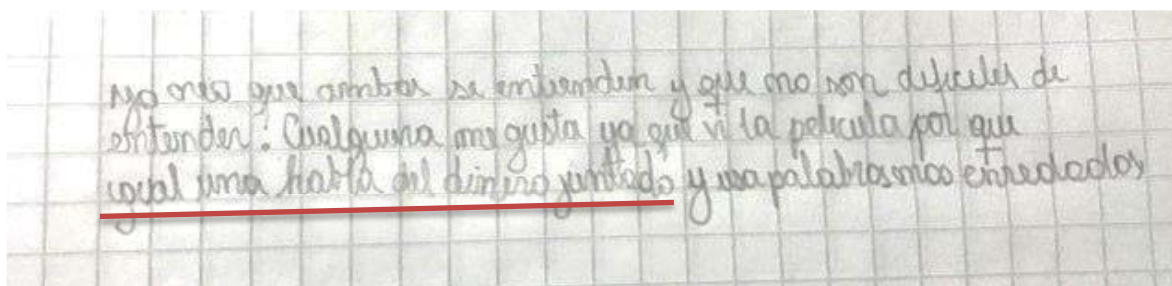 yo creo que ambos se entienden y que no son dificeles de
entender. Cualquiera me gusta ya que vi la pelicula por que
igual una habla del dinero juntado y usa palabras mas enredados